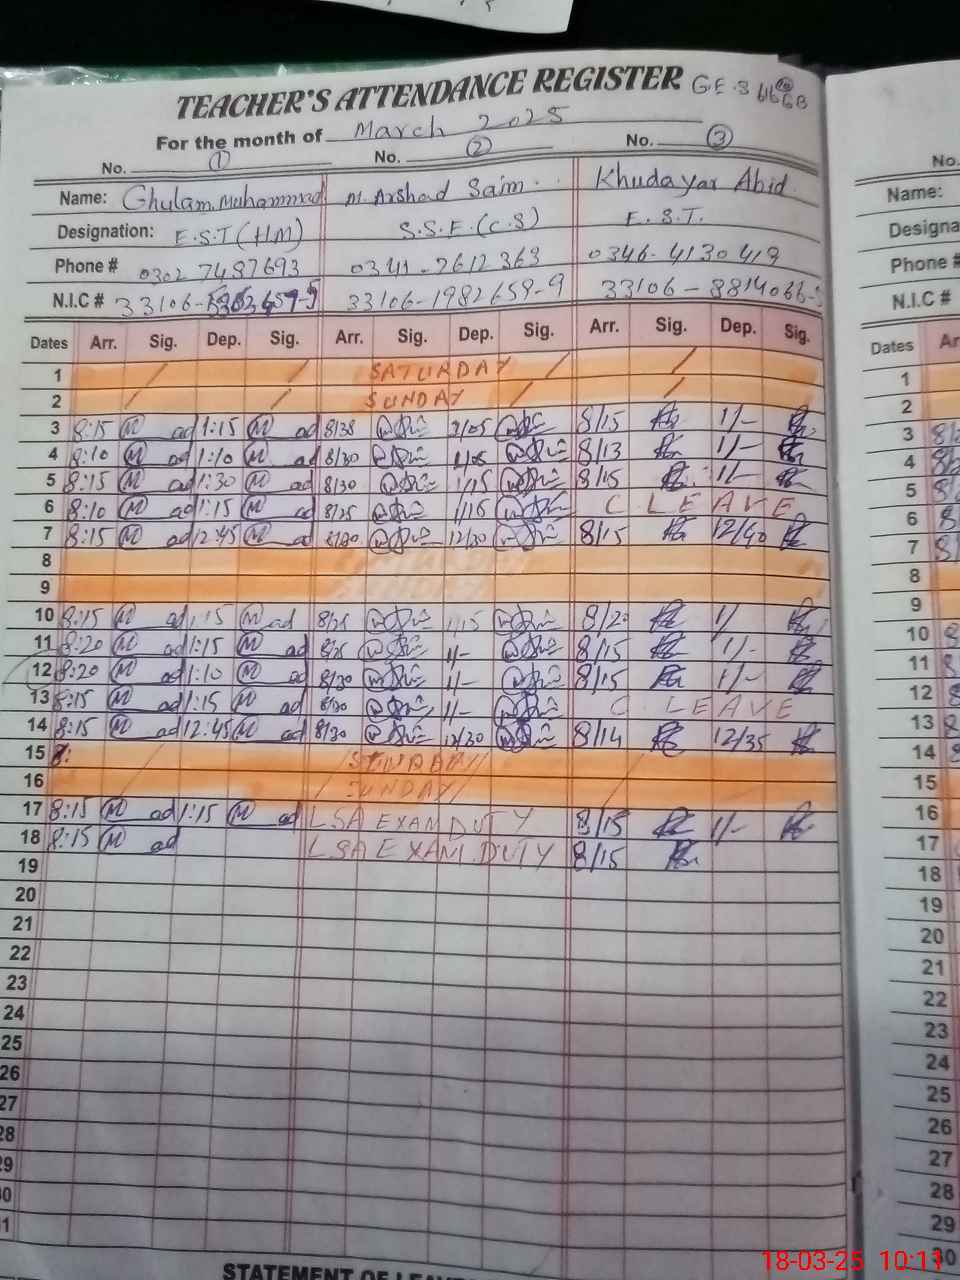 TEACHER'S ATTENDANCE REGISTER G.E.S
For the month of March 2025
No. 1 No. 2 No. 3
Name: Ghulam Muhammad M. Arshad Saim Khudayar Abid
Designation: E.S.T (HM) S.S.E (C.S) E.S.T.
Phone # 0302 7487693 0341-7612363 0346-4130419
N.I.C # 33106- 33106-1982659-9 33106-8814066-
Dates Arr. Sig. Dep. Sig. Arr. Sig. Dep. Sig. Arr. Sig. Dep. Sig.
1 SATURDAY
2 SUNDAY
3 8:15 M ad 1:15 M ad 8/15 1/-
4 8:10 M ad 1:10 M ad 8/30 8/13 1/-
5 8:15 M ad 1:30 M ad 8/30 1/15 8/15 1/-
6 8:10 M ad 1:15 M ad 8/25 1/15 C. LEAVE
7 8:15 M ad 12:45 M ad 8/30 12/30 8/15 12/40
8
9
10 8:15 M ad 1:15 M ad 8/25 1/15 8/20 1/
11 8:20 M ad 1:15 M ad 8/25 1/- 8/15 1/-
12 8:20 M ad 1:10 M ad 8/30 1/- 8/15 1/-
13 8:15 M ad 1:15 M ad 8/30 1/- C. LEAVE
14 8:15 M ad 12:45 M ad 8/30 12/30 8/14 12/35
15
16 SUNDAY
17 8:15 M ad 1:15 M ad LSA EXAM DUTY 8/15 1/-
18 8:15 M ad LSA EXAM DUTY 8/15
19
20
21
22
23
24
25
26
27
28
29
30
31
STATEMENT OF
No.
Name:
Designa
Phone #
N.I.C #
Dates Ar
1
2
3
4
5
6
7
8
9
10
11
12
13
14
15
16
17
18
19
20
21
22
23
24
25
26
27
28
29
30
18-03-25 10:11